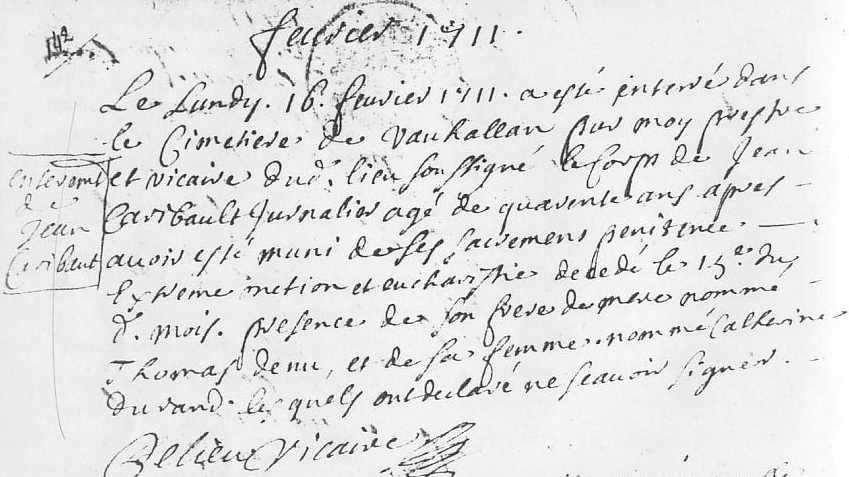 142
fevrier 1711.
Le Lundy. 16. fevrier 1711. a esté enterré dans
le Cimetiere de Vauhallan par moy prestre
et vicaire dud. lieu soussigné le Corps de Jean
Caribault Jurnalier agé de quarente ans apres
avoir esté muni de ses sacremens penitence
extreme onction et eucharistie decedé le 15e. du
d. mois. presence de son frere de mere nommé
Thomas denu, et de sa femme. nommé Catherine
durand. lesquels ont declaré ne scavoir signer.
Vicaire
enterremt
de
Jean
Caribaut